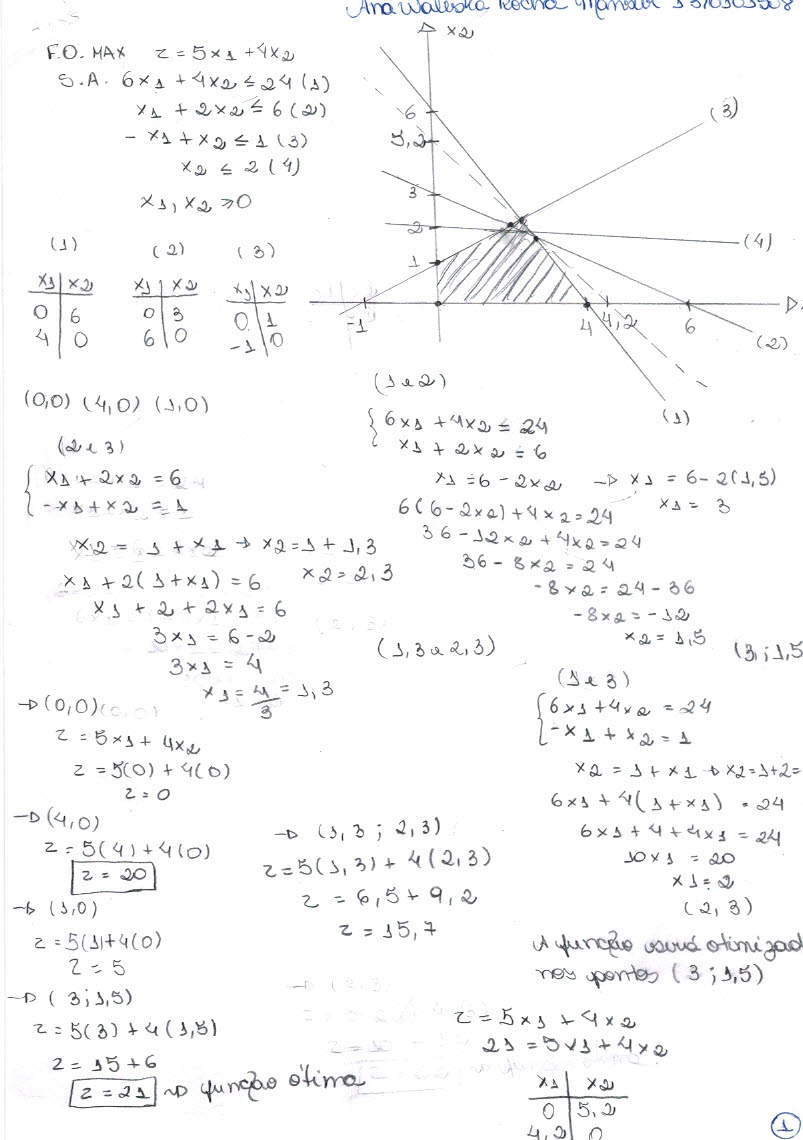 Ana Waleska Rocha
F.O. MAX z = 5x1 + 4x2
S.A. 6x1 + 4x2 ≤ 24 (1)
x1 + 2x2 ≤ 6 (2)
- x1 + x2 ≤ 1 (3)
x2 ≤ 2 (4)
x1, x2 ≥ 0
(1) (2) (3)
x1 | x2 x1 | x2 x1 | x2
0 | 6 0 | 3 0 | 1
4 | 0 6 | 0 -1 | 0
x2
6
5,2
3
2
1
-1 4 4,2 6
(3)
(4)
(2)
(1)
(0,0) (4,0) (1,0)
(2 e 3)
x1 + 2x2 = 6
-x1 + x2 = 1
x2 = 1 + x1 → x2 = 1 + 1,3
x1 + 2(1 + x1) = 6 x2 = 2,3
x1 + 2 + 2x1 = 6
3x1 = 6 - 2
3x1 = 4
x1 = 4/3 = 1,3
(1,3 e 2,3)
(1 e 2)
6x1 + 4x2 = 24
x1 + 2x2 = 6
x1 = 6 - 2x2 → x1 = 6 - 2(1,5)
x1 = 3
6(6 - 2x2) + 4x2 = 24
36 - 12x2 + 4x2 = 24
36 - 8x2 = 24
-8x2 = 24 - 36
-8x2 = -12
x2 = 1,5
(3 ; 1,5
(1 e 3)
6x1 + 4x2 = 24
-x1 + x2 = 1
x2 = 1 + x1 → x2 = 1 + 2 =
6x1 + 4(1 + x1) = 24
6x1 + 4 + 4x1 = 24
10x1 = 20
x1 = 2
(2, 3)
→ (0,0)
z = 5x1 + 4x2
z = 5(0) + 4(0)
z = 0
→ (4,0)
z = 5(4) + 4(0)
z = 20
→ (1,0)
z = 5(1) + 4(0)
z = 5
→ (3 ; 1,5)
z = 5(3) + 4(1,5)
z = 15 + 6
z = 21 → função ótima
→ (1,3 ; 2,3)
z = 5(1,3) + 4(2,3)
z = 6,5 + 9,2
z = 15,7
A função será otimizad
nos pontos (3 ; 1,5)
z = 5x1 + 4x2
21 = 5x1 + 4x2
x1 | x2
0 | 5,2
4,2 | 0
1